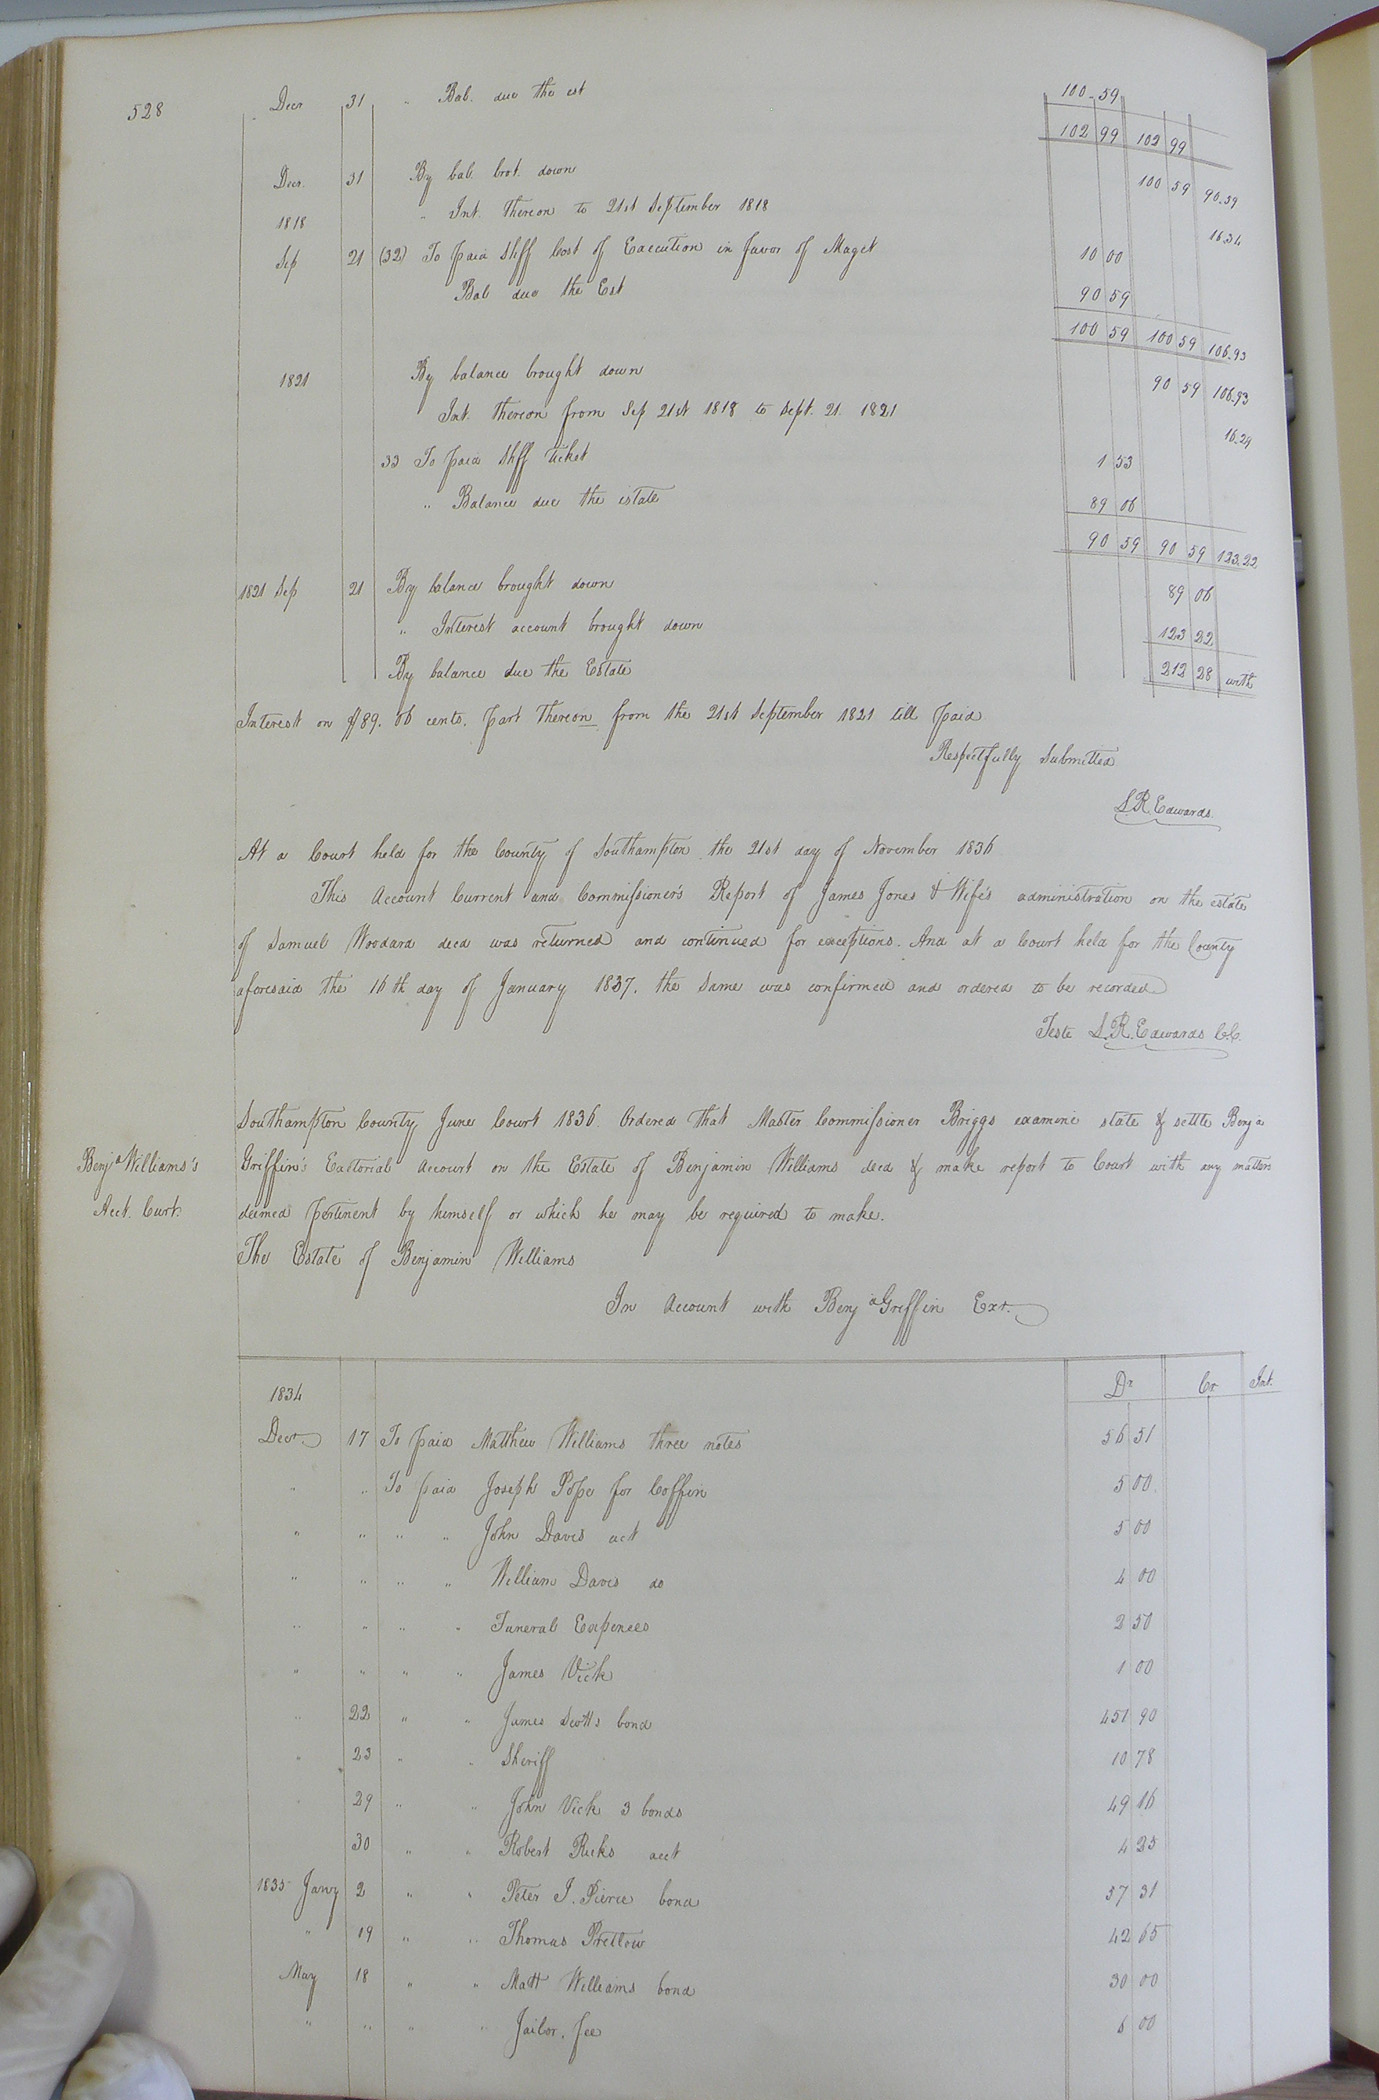 528 Decr 31 " Bal. due the est 100.59
102 99 102 99
Decr. 31 By bal. brot. down 100 59 90.59
1818 " Int. thereon to 21st September 1818 16.34
Sep 21 (32) To paid Shff Cost of Execution in favor of Maget 10 00
Bal due the Est 90 59
100 59 100 59 106.93
1821 By balance brought down 90 59 106.93
Int. thereon from Sep 21st 1818 to Sept. 21. 1821 16.29
33 To paid Shff ticket 1 53
" Balance due the estate 89 06
90 59 90 59 123.22
1821 Sep 21 By balance brought down 89 06
" Interest account brought down 123 22
By balance due the Estate 212 28 with
Interest on $89. 06 cents, part thereon from the 21st September 1821 till paid
Respectfully Submitted
S.R. Edwards.
At a Court held for the County of Southampton the 21st day of November 1836
This Account Current and Commissioner's Report of James Jones & Wife's administration on the estate
of Samuel Woodard decd was returned and continued for exceptions. And at a Court held for the County
aforesaid the 16th day of January 1837, the same was confirmed and ordered to be recorded
Teste S.R. Edwards C.C.
Southampton County June Court 1836. Ordered that Master Commissioner Briggs examine state & settle Benja
Benja Williams's
Acct. Curt.
Griffin's Exctorial account on the Estate of Benjamin Williams decd & make report to Court with any matters
deemed pertinent by himself or which he may be required to make.
The Estate of Benjamin Williams
In Account with Benja Griffin Exr.
1834 Dr Cr Int.
Decr. 17 To paid Matthew Williams three notes 56 51
" " To paid Joseph Pope for Coffin 5 00
" " " " John Davis act 5 00
" " " " William Davis do 4 00
" " " " Funeral Expences 2 50
" " " " James Vick 1 00
" 22 " " James Scotts bond 451 90
" 23 " " Sheriff 10 78
" 29 " " John Vick 3 bonds 49 16
30 " " Robert Ricks acct 4 25
1835 Jany 2 " " Peter J. Pierce bond 57 31
" 19 " " Thomas Pretlow 42 65
May 18 " " Matt Williams bond 30 00
" " " " Jailor, fee 6 00